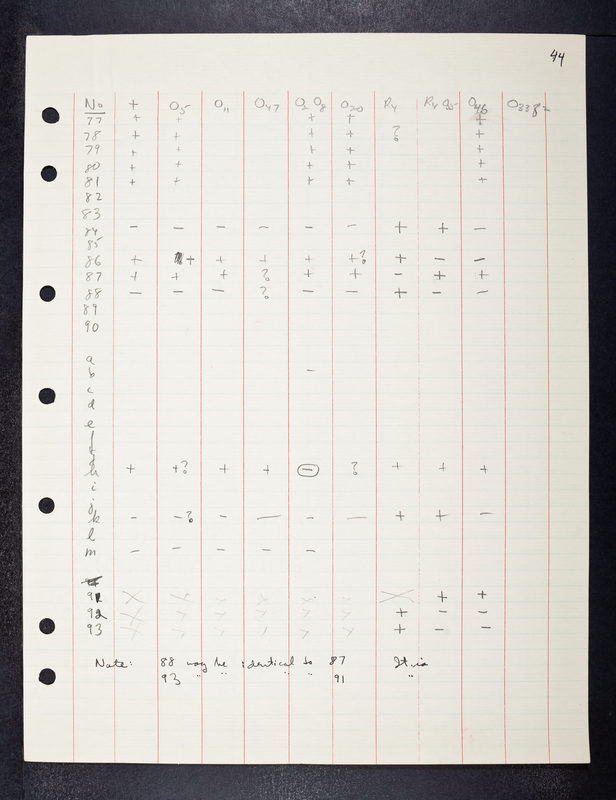 44
No + O5 O11 O47 O2 O8 O30 R4 R4 95- O46 O338=
77 + + + + +
78 + + + + ? +
79 + + + + +
80 + + + + +
81 + + + + +
82
83
84 − − − − − − + + −
85
86 + + + + + +? + − −
87 + + + ? + + − + +
88 − − − ? − − + − −
89
90
a
b −
c
d
e
f
g
h + +? + + − ? + + +
i
j
k − −? − − − − + + −
l
m − − − − −
91 × × × × × × × + +
92 × × × × × × + − −
93 × × × / × × + − −
Note: 88 may be identical to 87 It is
93 " " " " 91 "